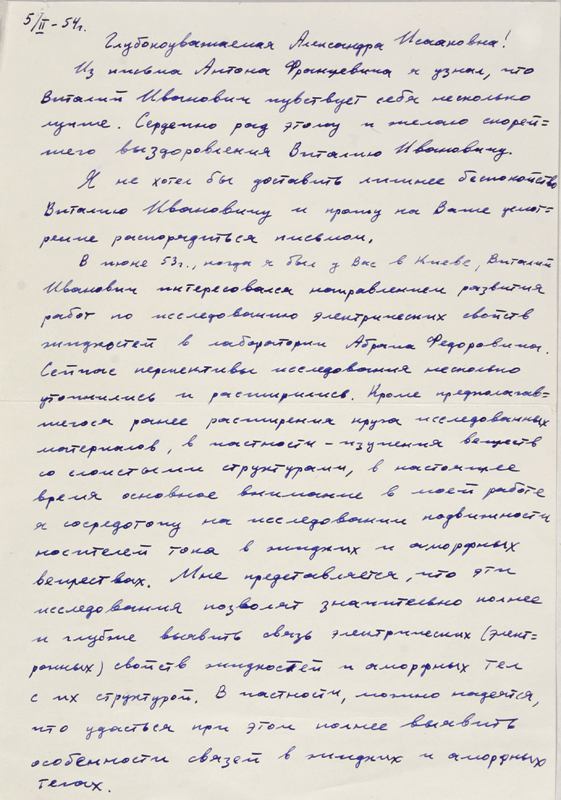 5/II-54г.
Глубокоуважаемая Александра Исааковна!
Из письма Антона Францевича я узнал, что
Виталий Иванович чувствует себя несколько
лучше. Сердечно рад этому и желаю скорей=
шего выздоровления Виталию Ивановичу.
Я не хотел бы доставить лишнее беспокойство
Виталию Ивановичу и прошу на Ваше усмот=
рение распорядиться письмом.
В июне 53г., когда я был у Вас в Киеве, Виталий
Иванович интересовался направлением развития
работ по исследованию электрических свойств
жидкостей в лаборатории Абрама Федоровича.
Сейчас перспективы исследования несколько
уточнились и расширились. Кроме предполагав=
шегося ранее расширения круга исследованных
материалов, в частности - изучения веществ
со слоистыми структурами, в настоящее
время основное внимание в моей работе
я сосредоточу на исследовании подвижности
носителей тока в жидких и аморфных
веществах. Мне представляется, что эти
исследования позволят значительно полнее
и глубже выявить связь электрических (элект=
ронных) свойств жидкостей и аморфных тел
с их структурой. В частности, можно надеятся,
что удасться при этом полнее выявить
особенности связей в жидких и аморфных
телах.